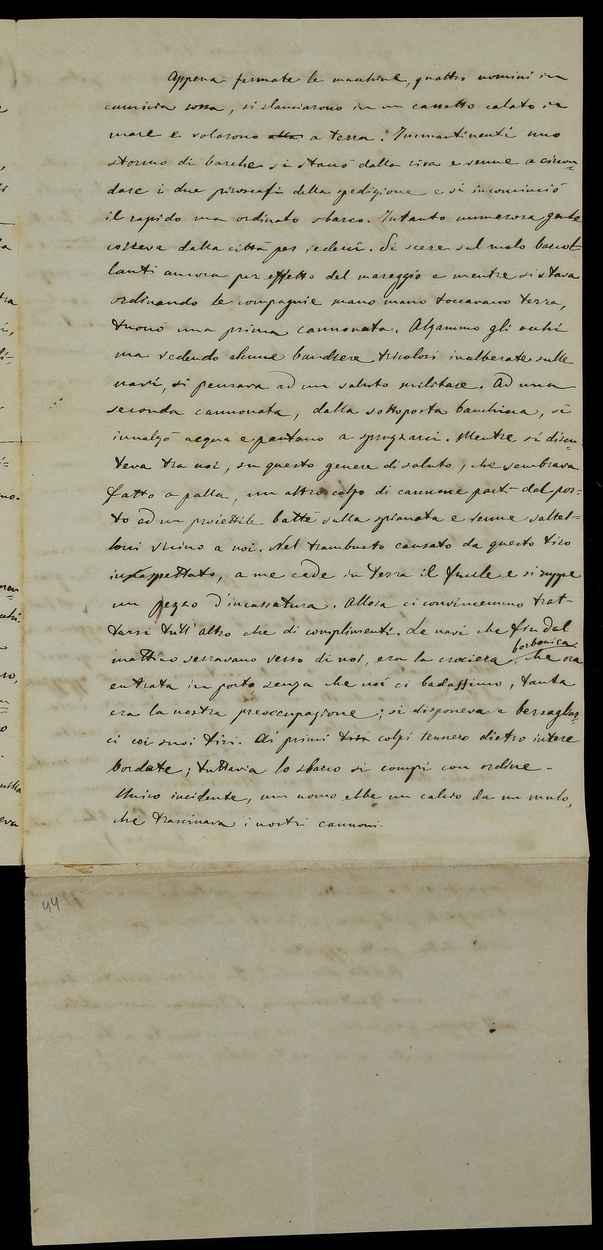 Appena fermate le macchine, quattro uomini in
camicia rossa, si slanciarono in un canotto calato in
mare e volarono alla a terra. Immantinenti uno
stormo di barche si staccò dalla riva e venne a circon=
dare i due piroscafi della spedizione e si incominciò
il rapido ma ordinato sbarco. Intanto numerosa gente
correva dalla città per vederci. Si scese sul molo barcol=
lanti ancora per effetto del mareggio e mentre si stava
ordinando le compagnie mano mano toccavano terra,
tuonò una prima cannonata. Alzammo gli occhi
ma vedendo alcune bandiere tricolori inalberate sulle
navi, si pensava ad un saluto militare. Ad una
seconda cannonata, dalla sottoposta banchina, si
innalzò acqua e pantano a spruzzarci. Mentre si discu=
teva tra noi, su questo genere di saluto, che sembrava
fatto a palla, un altro colpo di cannone partì dal por=
to ad un proiettile battè sulla spianata e venne saltel=
loni vicino a noi. Nel trambusto causato da questo tiro
inaspettato, a me cade in terra il fucile e si ruppe
un pezzo d'incassatura. Allora ci convincemmo trat=
tarsi tutt'altro che di complimenti. Le navi che fin dal
mattino serravano verso di noi, era la crociera borbonica, che ora
entrata in porto senza che noi ci badassimo, tanta
era la nostra preoccupazione; si disponeva a bersagliar=
ci coi suoi tiri. Ai primi tiri colpi tennero dietro intere
bordate; tuttavia lo sbarco si compì con ordine.
Unico incidente, un uomo ebbe un calcio da un mulo,
che trascinava i nostri cannoni.
44